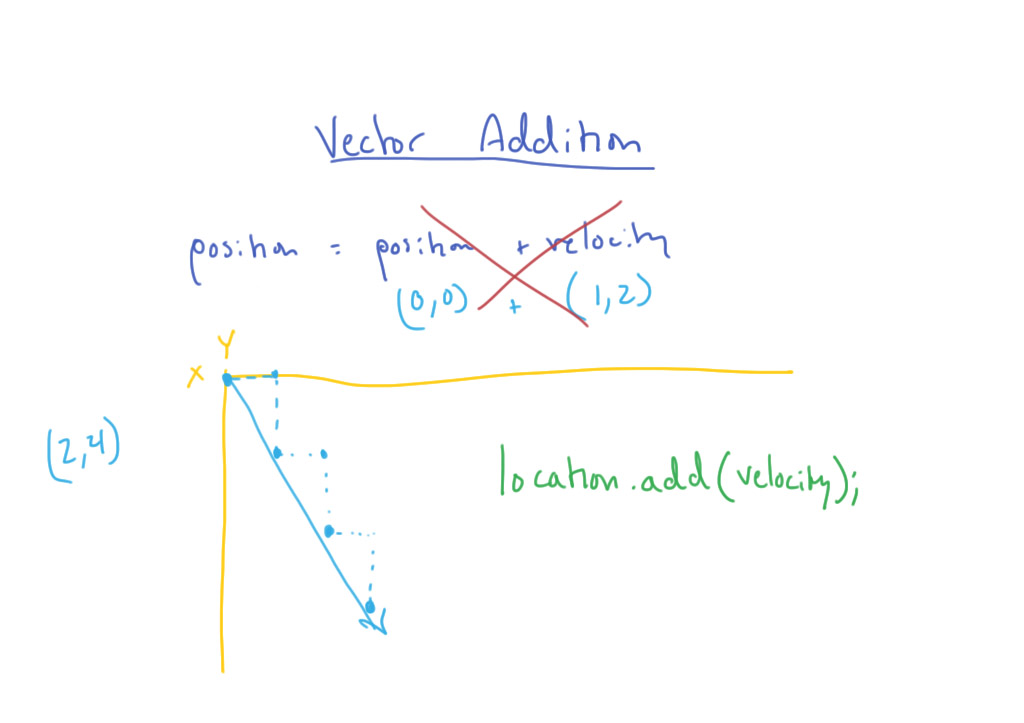 Vector Addition
position = position + velocity
(0,0) + (1,2)
Y
X
(2,4)
location.add(velocity);